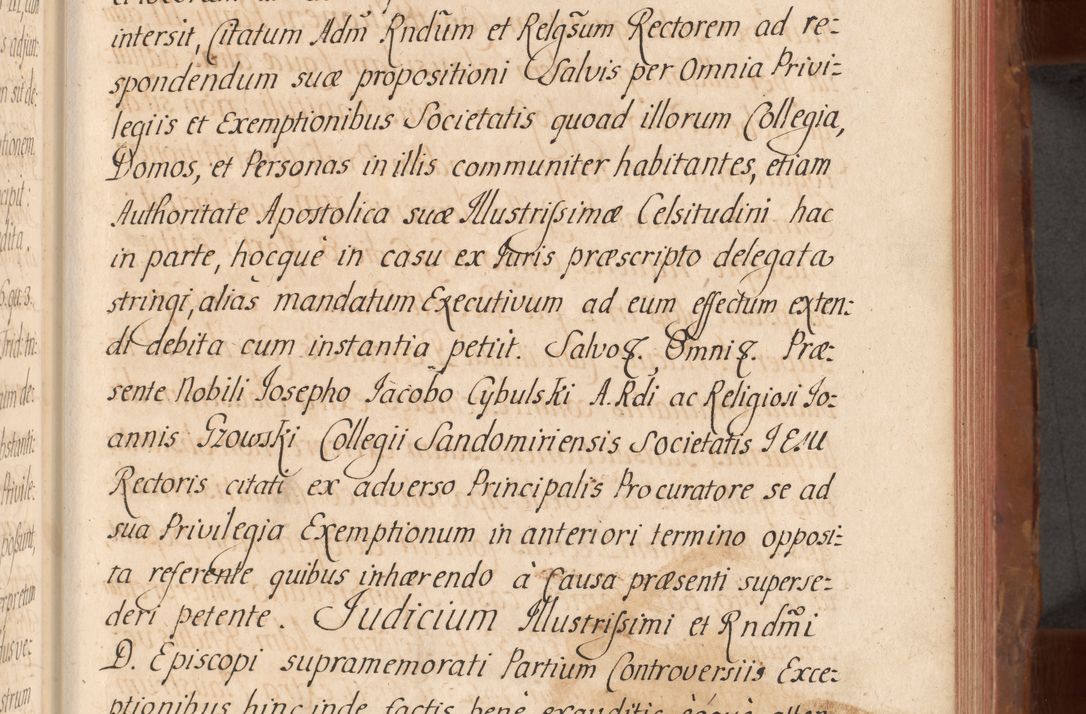 intersit, Citatum Adm̃ Rndũm et Relgs̃um Rectorem ad re=
spondendum suæ propositioni Salvis per Omnia Privi=
legiis et Exemptionibus Societatis quoad illorum Collegia,
Domos, et Personas in illis communiter habitantes, etiam
Authoritate Apostolica suæ Illustrissimæ Celsitudini hac
in parte, hocquè in casu ex Juris præscripto delegata
stringi, aliàs mandatum Executivum ad eum effectum exten=
di debita cum instantia petiit. Salvoq. Omniq. Præ=
sente Nobili Josepho Jacobo Cybulski A. Rdi ac Religiosi Jo=
annis Gzowski Collegii Sandomiriensis Societatis IESU
Rectoris citati ex adverso Principalis Procuratore se ad
sua Privilegia Exemptionum in anteriori termino opposi=
ta referente quibus inhærendo à Causa præsenti superse=
deri petente. Judicium Illustrissimi et Rndm̃i
D. Episcopi supramemorati Partium Controversiis Exce=
ptionibus hinc inde factis benè exauditis
s adjun:
n sit de:
tionem
cipit:
dita.
6. qu: 3.
um de:
bstanti:
Privile:
possunt,
dus ve:
strum